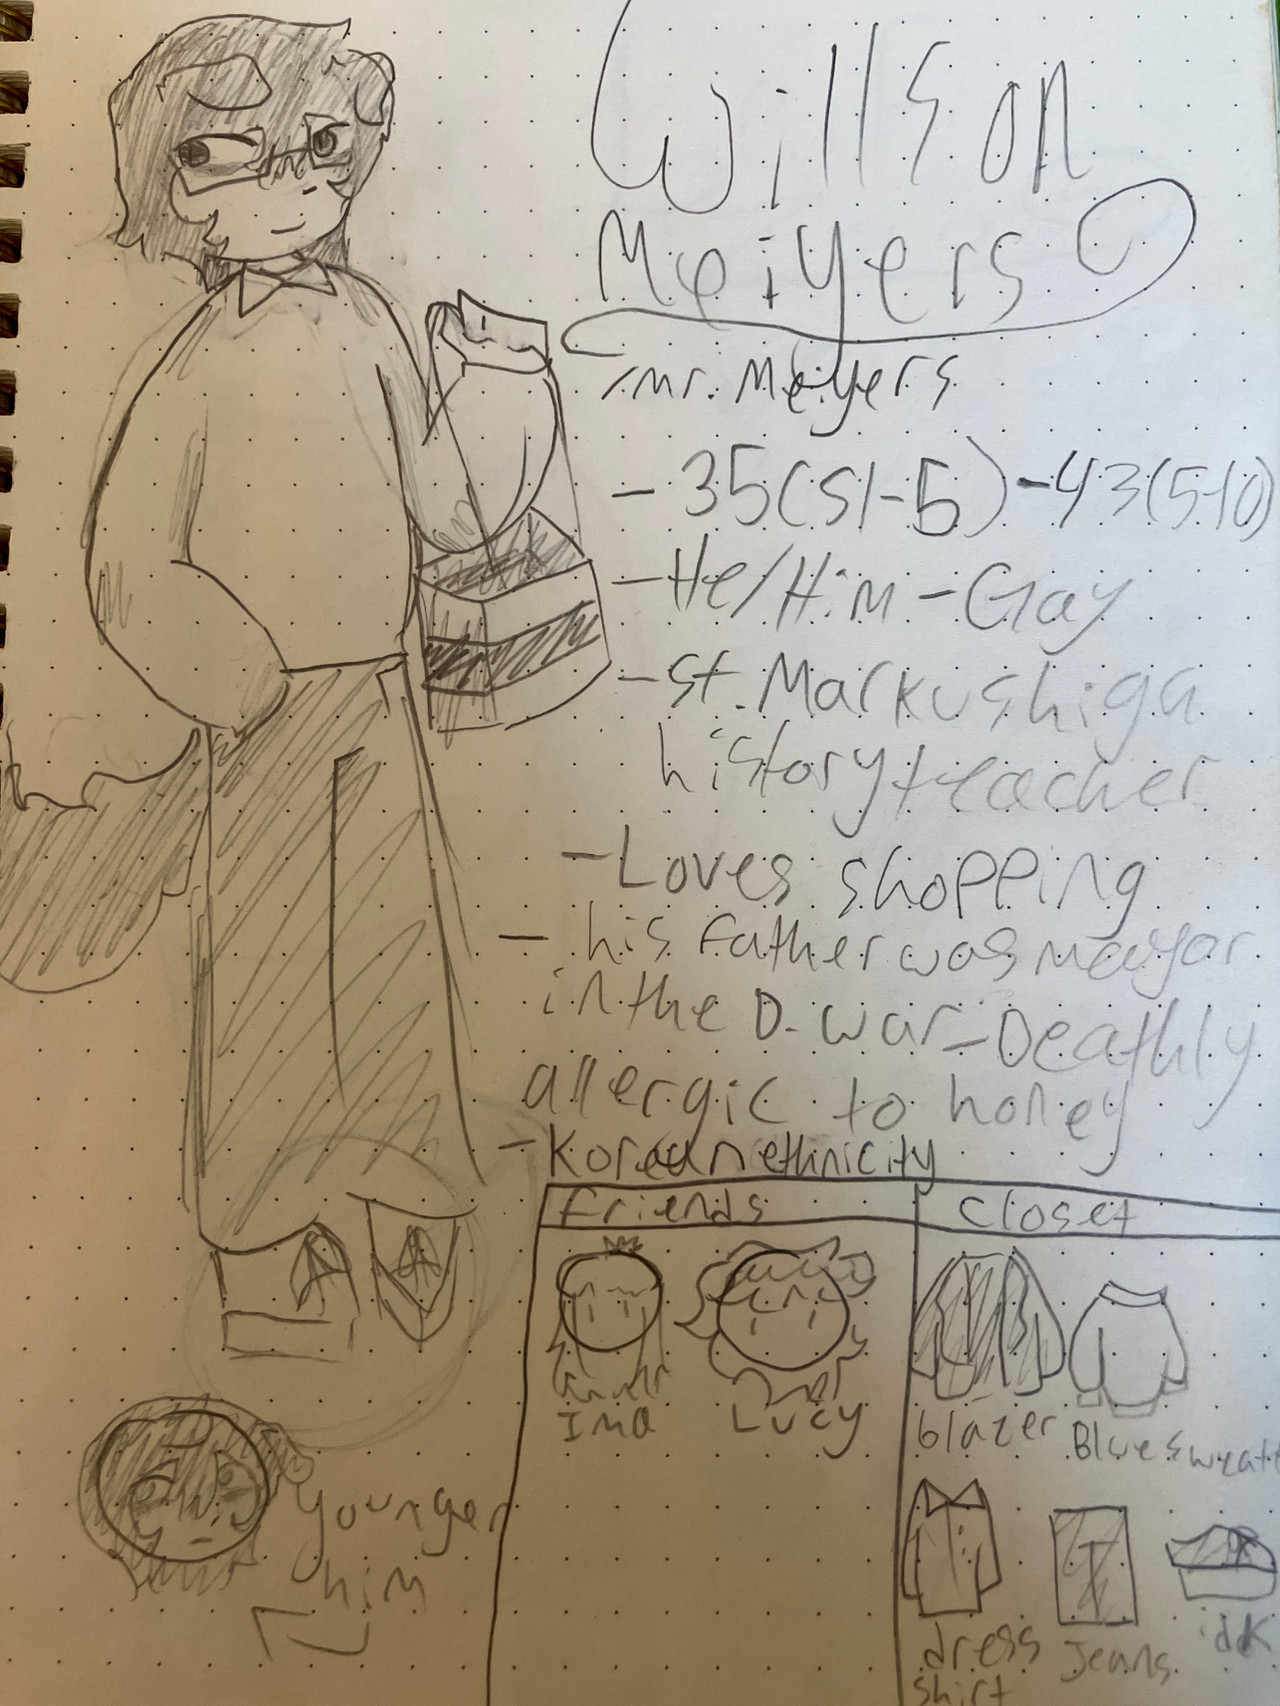 Willson
Meiyers
/mr. Meiyers
- 35(S1-5)-43(5-10)
- He/Him - Gay
- St. Markushiga
history teacher
- Loves shopping
- his father was mayor
in the D. war - Deathly
allergic to honey
- Korean ethnicity
friends
closet
Ima
Lucy
blazer
Blue sweat
dress
shirt
Jeans
idk
younger
him